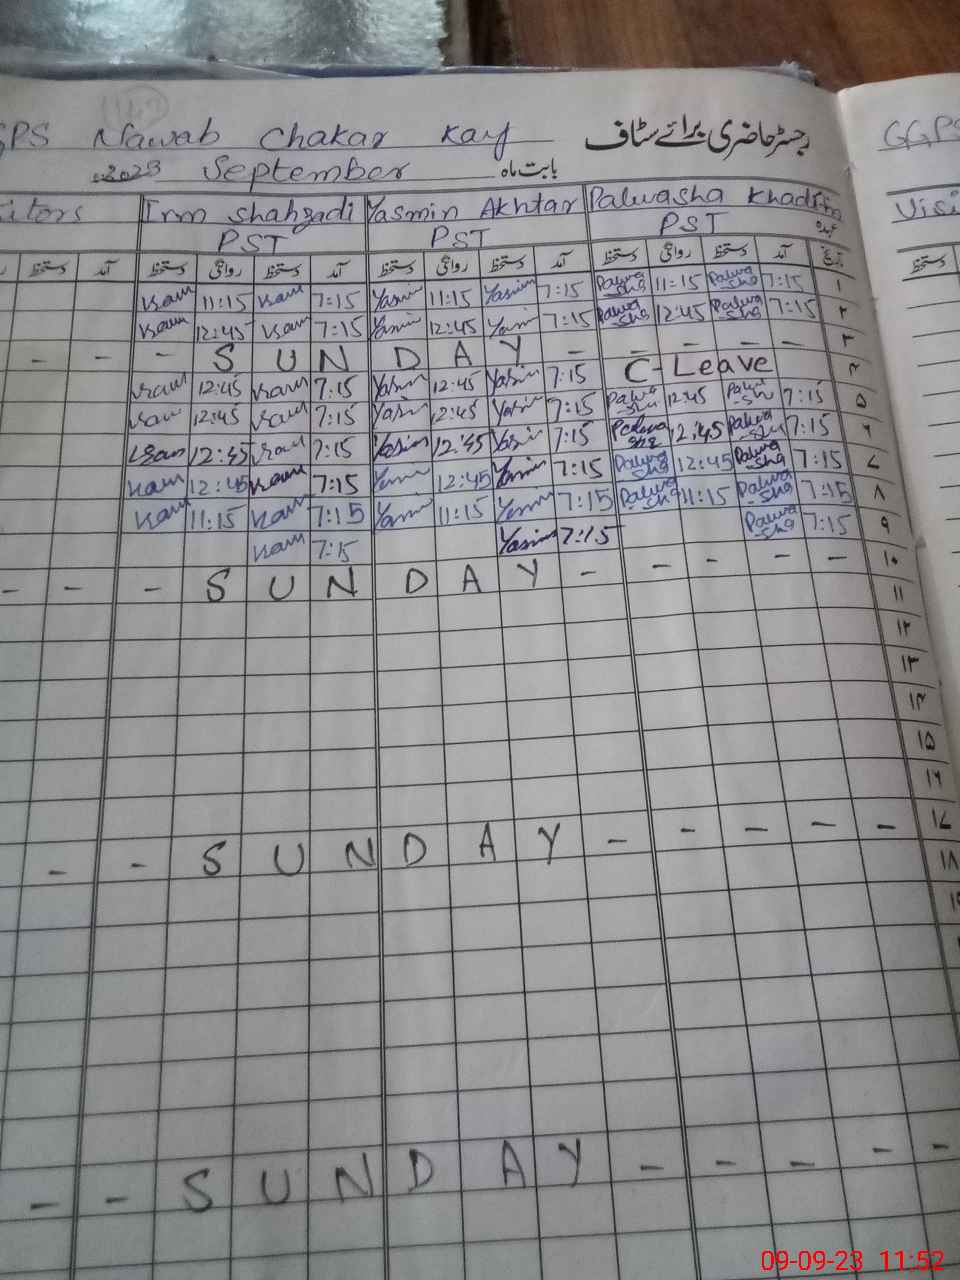 GPS Nawab Chakar Kay رجسٹر حاضری برائے سٹاف GGPS
2023 September بابت ماہ
Irm Shahzadi Yasmin Akhtar Palwasha Khadim Visi
PST PST PST عہدہ
آمد دستخط روانگی دستخط آمد دستخط روانگی دستخط آمد دستخط روانگی دستخط آمد تاریخ دستخط
11:15 7:15 Yasmin 11:15 Yasmin 7:15 Palwa-sha 11:15 Palwa-sha 7:15 ۱
12:45 7:15 Yasmin 12:45 Yasmin 7:15 Palwa-sha 12:45 Palwa-sha 7:15 ۲
- - - S U N D A Y - - - - - ۳
12:45 7:15 Yasmin 12:45 Yasmin 7:15 C-Leave ۴
12:45 7:15 Yasmin 12:45 Yasmin 7:15 Palwa-sha 12:45 Palwa-sha 7:15 ۵
12:45 7:15 Yasmin 12:45 Yasmin 7:15 Palwa-sha 12:45 Palwa-sha 7:15 ۶
12:45 7:15 Yasmin 12:45 Yasmin 7:15 Palwa-sha 12:45 Palwa-sha 7:15 ۷
11:15 7:15 Yasmin 11:15 Yasmin 7:15 Palwa-sha 11:15 Palwa-sha 7:15 ۸
7:15 Yasmin 7:15 Palwa-sha 7:15 ۹
- - - S U N D A Y - - - - - ۱۰
۱۱
۱۲
۱۳
۱۴
۱۵
۱۶
- - S U N D A Y - - - - - ۱۷
۱۸
- - S U N D A Y - - - - -
09-09-23 11:52